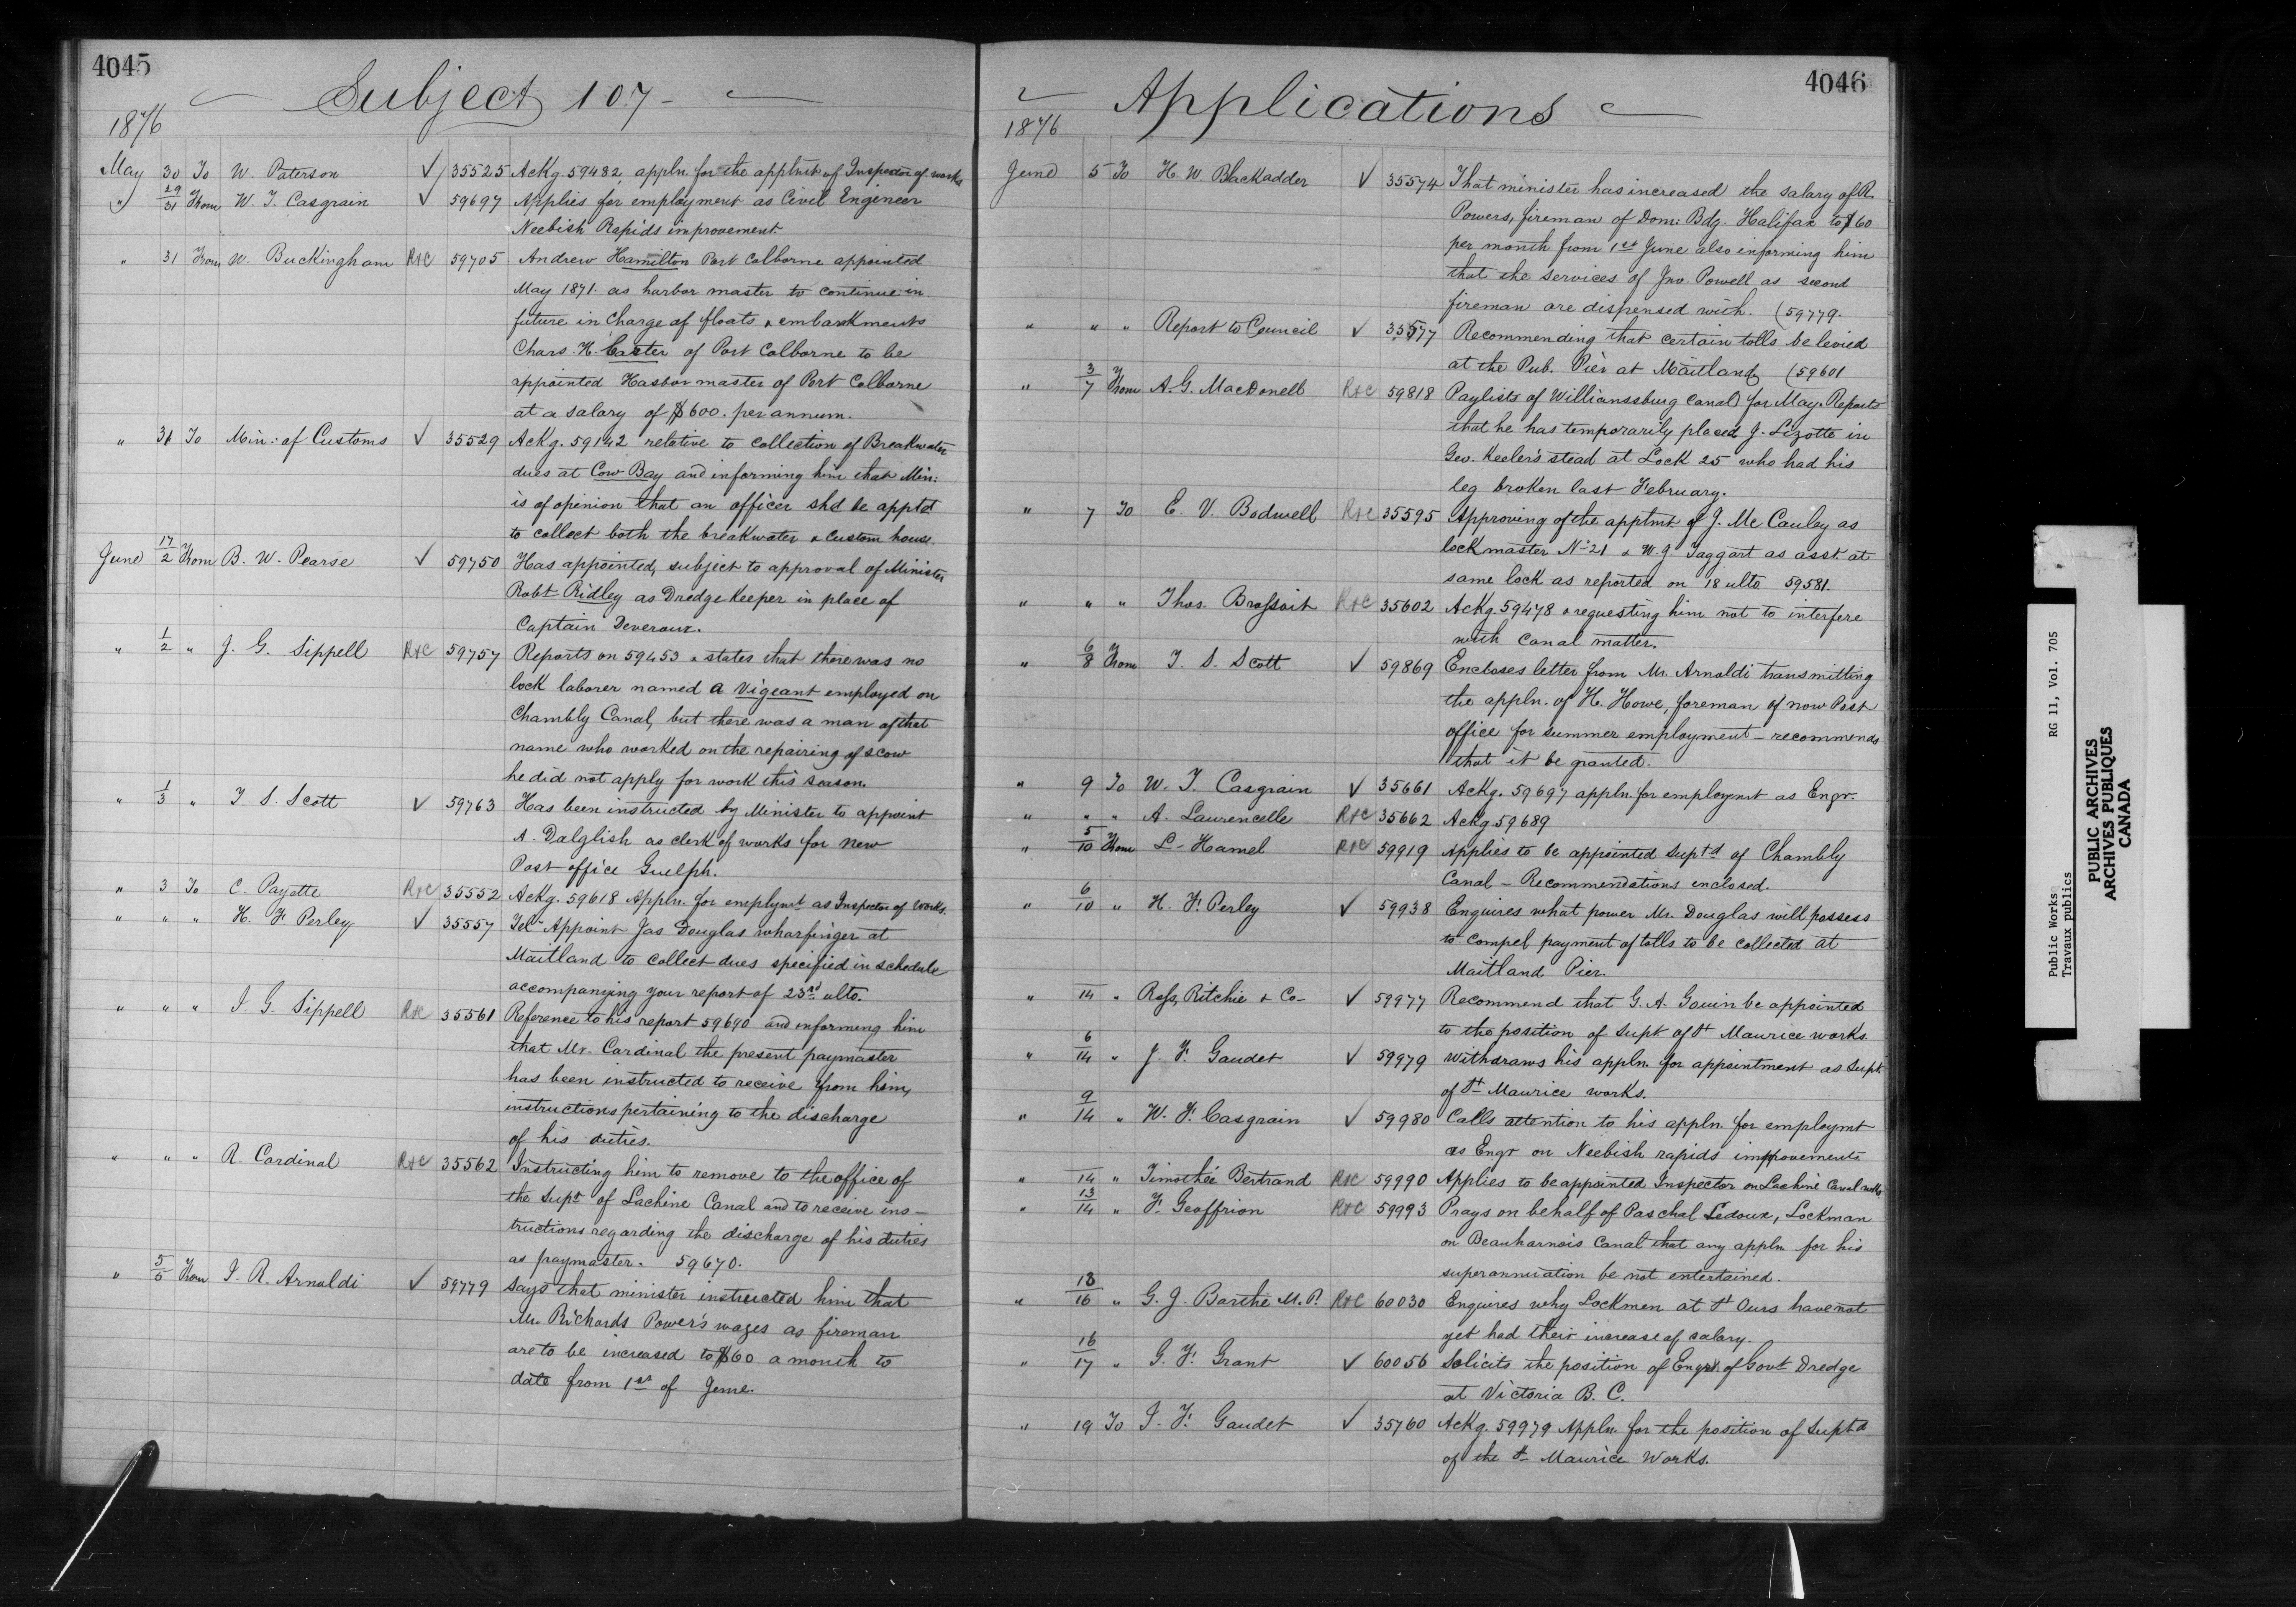 4045
Subject 107
1876
May 30 To W. Paterson ✓ 35525 Ackg. 59482, appln. for the apptmt of Inspector of works
" 29/31 From W. T. Casgrain ✓ 59697 Applies for employment as Civil Engineer
Neebish Rapids improvement
" 31 From W. Buckingham R&C 59705 Andrew Hamilton Port Colborne appointed
May 1871. as harbor master to continue in
future in charge of floats & embankments
Chars. H. Carter of Port Colborne to be
appointed Harbor master of Port Colborne
at a salary of $600. per annum.
" 31 To Min: of Customs ✓ 35529 Ackg. 59142 relative to collection of Breakwater
dues at Cow Bay and informing him that Min:
is of opinion that an officer shd be apptd
to collect both the breakwater & custom house.
June 17/2 From B. W. Pearse ✓ 59750 Has appointed, subject to approval of Minister
Robt Ridley as Dredge Keeper in place of
Captain Deveroux.
" 1/2 " J. G. Sippell R&C 59757 Reports on 59453 & states that there was no
lock laborer named A Vigeant employed on
Chambly Canal, but there was a man of that
name who worked on the repairing of scow
he did not apply for work this season.
" 1/3 " T. S. Scott ✓ 59763 Has been instructed by Minister to appoint
A. Dalglish as clerk of works for new
Post office Guelph.
" 3 To C. Payette R&C 35552 Ackg. 59618 Appln. for emplymt as Inspector of Works.
" " " H. F. Perley ✓ 35557 Tel- Appoint Jas Douglas wharfinger at
Maitland to collect dues specified in schedule
accompanying your report of 23rd ulto.
" " " J. G. Sippell R&C 35561 Reference to his report 59690 and informing him
that Mr. Cardinal the present paymaster
has been instructed to receive from him,
instructions pertaining to the discharge
of his duties.
" " " R. Cardinal R&C 35562 Instructing him to remove to the office of
the Supt of Lachine Canal and to receive ins-
tructions regarding the discharge of his duties
as paymaster. 59670.
" 5/5 From J. R. Arnoldi ✓ 59779 Says that minister instructed him that
Mr. Richards Power's wages as fireman
are to be increased to $60 a month to
date from 1st of June.
4046
Applications
1876
June 5 To H. W. Blackadder ✓ 35574 That minister has increased the salary of R.
Powers, fireman of Dom: Bdg. Halifax to $60
per month from 1st June also informing him
that the services of Jno. Powell as second
fireman are dispensed with. (59779.
" " " Report to Council ✓ 35577 Recommending that certain tolls be levied
at the Pub. Pier at Maitland (59601
" 3/7 From A. G. MacDonell R&C 59818 Paylists of Williamssburg Canal for May. Reports
that he has temporarily placed J. Lizotte in
Geo. Keeler's stead at Lock 25 who had his
leg broken last February.
" 7 To E. V. Bodwell R&C 35595 Approving of the apptmt of J. McCauley as
lockmaster No 21 & W. J. Taggart as asst. at
same lock as reported on 18 ulto 59581.
" " " Thos. Brossoit R&C 35602 Ackg. 59478 & requesting him not to interfere
with canal matter.
" 6/8 From T. S. Scott ✓ 59869 Encloses letter from Mr. Arnoldi transmitting
the appln. of H. Howe, foreman of now Post
office for summer employment - recommends
that it be granted.
" 9 To W. T. Casgrain ✓ 35661 Ackg. 59697 appln. for employmt as Engr.
" " " A. Laurencelle R&C 35662 Ackg 59689
" 5/10 From L. Hamel R&C 59919 Applies to be appointed Suptd of Chambly
Canal - Recommendations enclosed.
" 6/10 " H. F. Perley ✓ 59938 Enquires what power Mr. Douglas will possess
to compel payment of tolls to be collected at
Maitland Pier.
" 14 " Ross, Ritchie & Co- ✓ 59977 Recommend that G. A. Gouin be appointed
to the position of Supt of St Maurice works.
" 6/14 " J. F. Gaudet ✓ 59979 Withdraws his appln. for appointment as Supt.
of St Maurice works.
" 9/14 " W. F. Casgrain ✓ 59980 Calls attention to his appln. for employmt
as Engr on Neebish rapids improvements
" 14 " Timothée Bertrand R&C 59990 Applies to be appointed Inspector on Lachine Canal works
" 13/14 " F. Geoffrion R&C 59993 Prays on behalf of Paschal Ledoux, Lockman
on Beauharnois Canal that any appln for his
superannuation be not entertained.
" 13/16 " G. J. Barthe M.P. R&C 60030 Enquires why Lockmen at St Ours have not
yet had their increase of salary.
" 16/17 " G. F. Grant ✓ 60056 Solicits the position of Engr. of Govt Dredge
at Victoria B.C.
" 19 To J. F. Gaudet ✓ 35760 Ackg. 59979 Appln. for the position of Suptd
of the St Maurice Works.
Public Works RG 11, Vol. 705
Travaux publics
PUBLIC ARCHIVES
ARCHIVES PUBLIQUES
CANADA